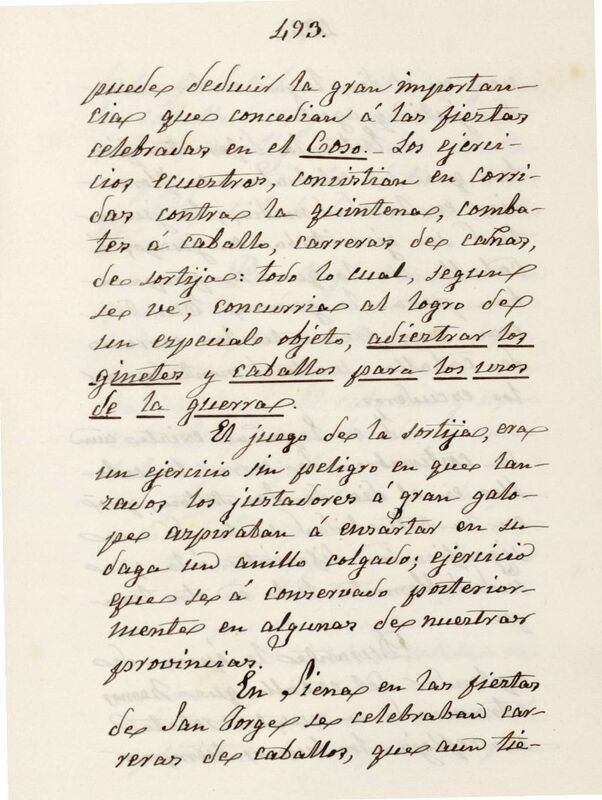 493.
puede deducir la gran importan-
cia que concedian á las fiestas
celebradas en el Coso. Los ejerci-
cios ecuestres, consistian en corri-
das contra la quintena, comba-
tes á caballo, carreras de cañas,
de sortija: todo lo cual, segun
se vé, concurria al logro de
un especial objeto, adiestrar los
ginetes y caballos para los usos
de la guerra.
El juego de la sortija, era
un ejercicio sin peligro en que lan-
zados los justadores á gran galo-
pe aspiraban á ensartar en su
daga un anillo colgado; ejercicio
que se á conservado posterior-
mente en algunas de nuestras
provincias.
En Siena en las fiestas
de San Jorge se celebraban car-
reras de caballos, que aun tie-